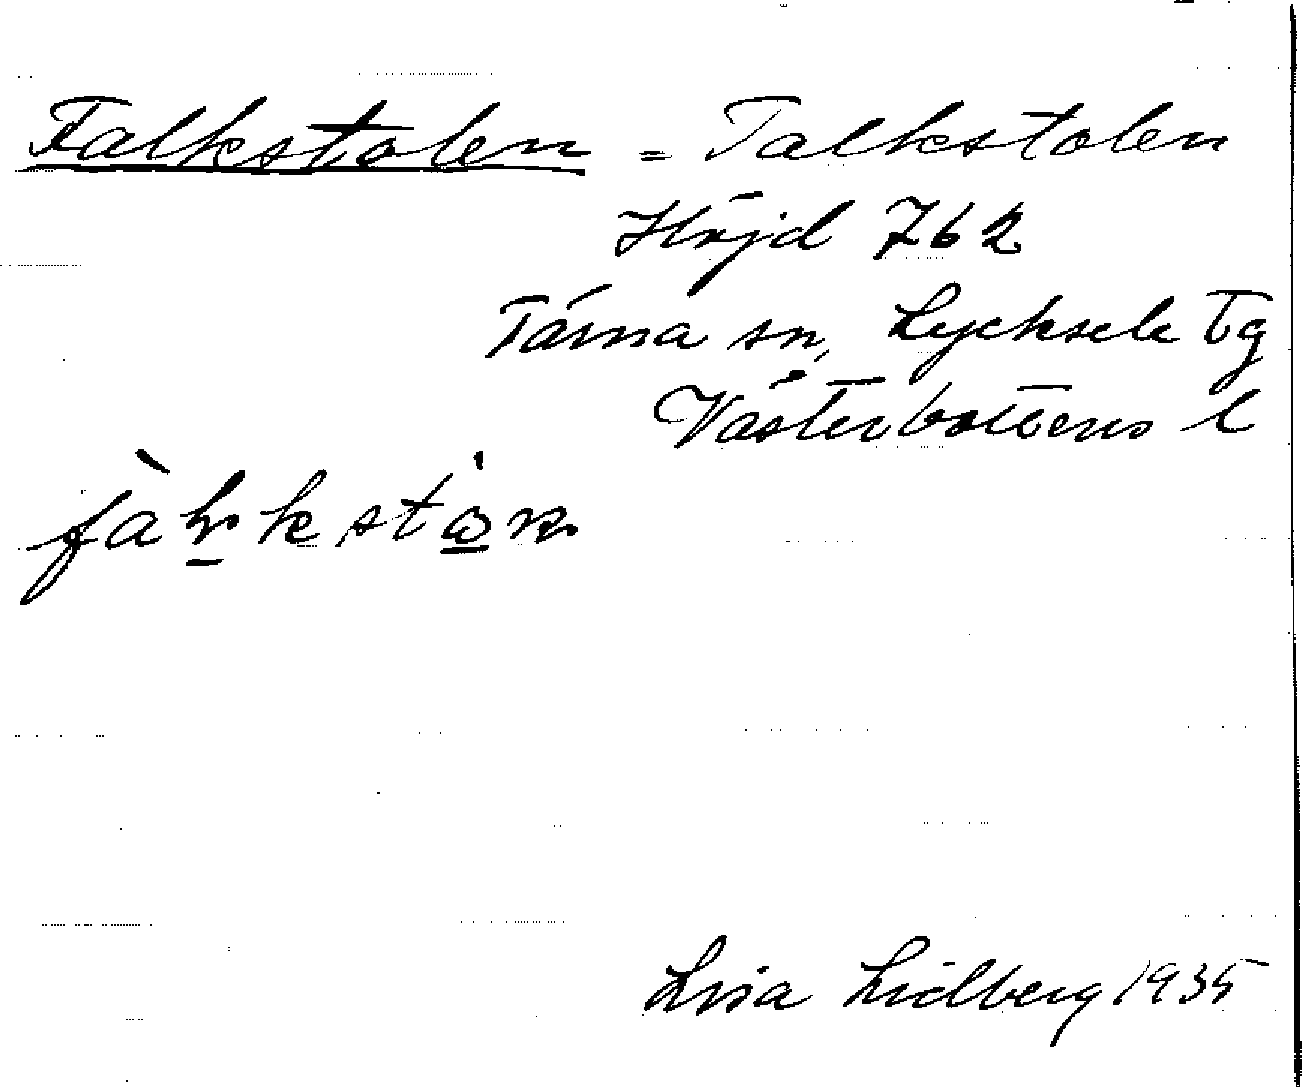 Falkstolen = Talkstolen
Höjd 762
Tärna sn, Lycksele tg
Västerbottens l
Lisa Lidberg 1935